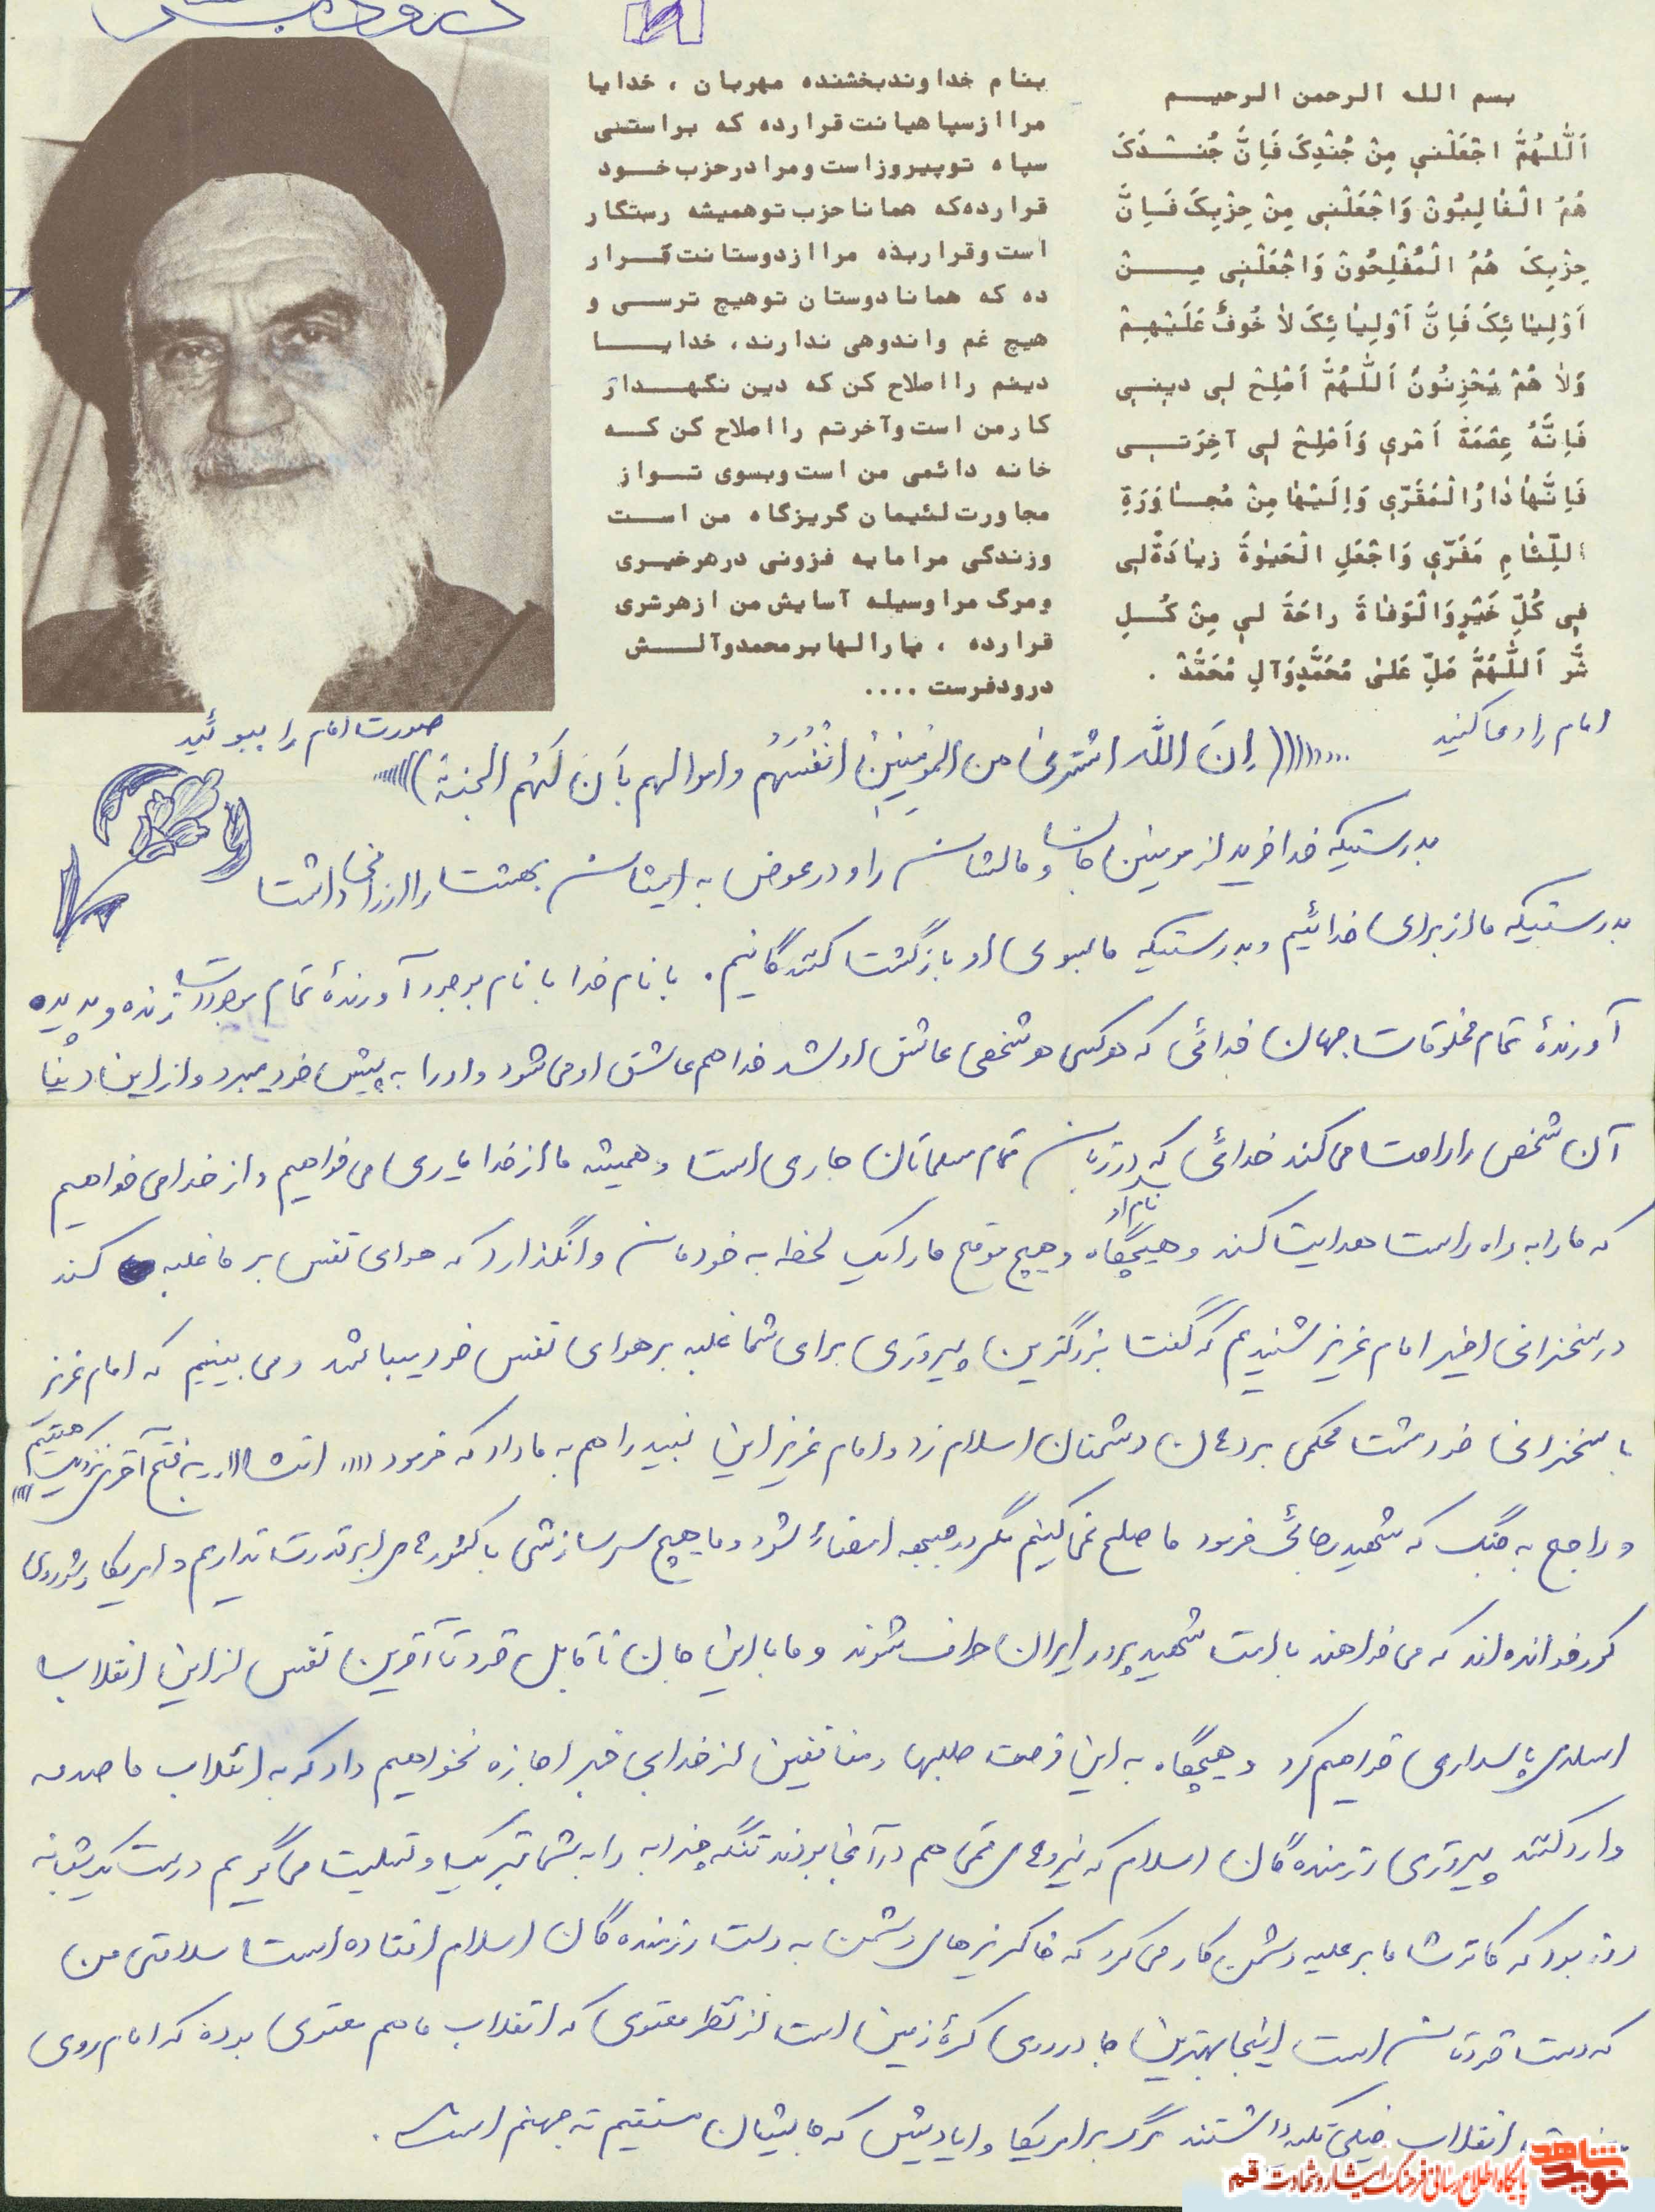 درود بر
بسم الله الرحمن الرحیم
اَللّهُمَّ اجْعَلْنی مِنْ جُنْدِکَ فَاِنَّ جُنْدَکَ
هُمُ الْغالِبُونَ وَاجْعَلْنی مِنْ حِزْبِکَ فَاِنَّ
حِزْبِکَ هُمُ الْمُفْلِحُونَ وَاجْعَلْنی مِنْ
اَوْلِیائِکَ فَاِنَّ اَوْلِیائِکَ لاٰ خُوفٌ عَلَیْهِمْ
وَلاٰ هُمْ یَحْزِنُونَ اَللّهُمَّ اَصْلِحْ لی دینی
فَاِنَّهُ عِصْمَةُ اَمْری وَاَصْلِحْ لی آخِرَتی
فَاِنَّها دارُ الْمَقَرّی وَاِلَیْها مِنْ مُجاوَرَةِ
اللِّئامِ مَفَرّی وَاجْعَلِ الْحَیٰوةَ زِیادَةً لی
فی کُلِّ خَیْرٍ وَالْوَفاةَ راحَةً لی مِنْ کُلِ
شَّر اَللّهُمَّ صَلِّ عَلی مُحَمَّدٍ وَآلِ مُحَمَّدْ .
بنام خداوند بخشنده مهربان ، خدایا
مرا از سپاهیانت قرار ده که براستی
سپاه تو پیروز است و مرا در حزب خود
قرار ده که همانا حزب تو همیشه رستگار
است و قرار بده مرا از دوستانت قرار
ده که همانا دوستان تو هیچ ترسی و
هیچ غم و اندوهی ندارند ، خدایا
دینم را اصلاح کن که دین نگهدار
کار من است و آخرتم را اصلاح کن که
خانه دائمی من است و بسوی تو از
مجاورت لئیمان گریزگاه من است
وزندگی مرا مایه فزونی در هر خیری
و مرگ مرا وسیله آسایش من از هر شری
قرار ده ، بارالها بر محمد و آلش
درود فرست ....
امام را دعا کنید
صورت امام را ببوئید
(((((( اِنَ اللّه اشتری من المومِنینَ انْفُسَهُم و اموالهم بأنَ لَهُم الجنة ))))))
بدرستیکه خدا خرید از مومنین جان و مالشان را و در عوض به ایشان بهشت را ارزانی داشت
بدرستیکه ما از برای خدائیم و بدرستیکه ما بسوی او بازگشت کنندگانیم . با نام خدا با نام بوجود آورندۀ تمام موجودات زنده و پدیده
آورندۀ تمام مخلوقات جهان خدائی که هر کس هر شخصی عاشق او شد خدا هم عاشق او می شود و او را به پیش خود میبرد و از این دنیا
آن شخص را راحت می کند خدائی که نام او در زبان تمام مسلمانان جاری است و همیشه ما از خدا یاری می خواهیم و از خدا می خواهیم
که ما را به راه راست هدایت کند و هیچگاه و هیچ موقع ما را یک لحظه به خودمان وانگذارد که هوای نفس بر ما غلبه کند
در سخنرانی اخیر امام عزیز شنیدیم که گفت بزرگترین پیروزی برای شما غلبه بر هوای نفس خود میباشد و می بینیم که امام عزیز
با سخنرانی خود مشت محکمی بر دهان دشمنان اسلام زد و امام عزیز این نوید را هم به ما داد که فرمود (((( انشاا... به فتح آخر نزدیک هستیم ))))
و راجع به جنگ که شهید رجائی فرمود ما صلح نمی کنیم مگر در جبهه امضاء شود و ما هیچ سر سازشی با کشورهای ابرقدرت نداریم و امریکا و شوروی
کور خوانده اند که می خواهند با امت شهید پرور ایران طرف شوند و ما با این جان ناقابل خود تا آخرین نفس از این انقلاب
اسلامی پاسداری خواهیم کرد و هیچگاه به این فرصت طلبها و منافقین از خدا بی خبر اجازه نخواهیم داد که به انقلاب ما صدمه
وارد کنند پیروزی رزمنده گان اسلام که نیروهای قمی هم در آنجا بودند تنگه چذابه را به شما تبریک و تسلیت می گویم درست یک شبانه
روز بود که کاتوشا ما بر علیه دشمن کار می کرد که خاکریزهای دشمن به دست رزمنده گان اسلام افتاده است سلامتی من
که دست خودتان است اینجا بهترین جا در روی کرۀ زمین است از نظر معنوی که انقلاب ما هم معنوی بوده که امام روی
انقلاب خیلی تکیه داشتند مرگ بر امریکا و ایادیش که جایشان مستقیم ته جهنم است .
نوید شاهد
پایگاه اطلاع رسانی فرهنگ ایثار و شهادت قم